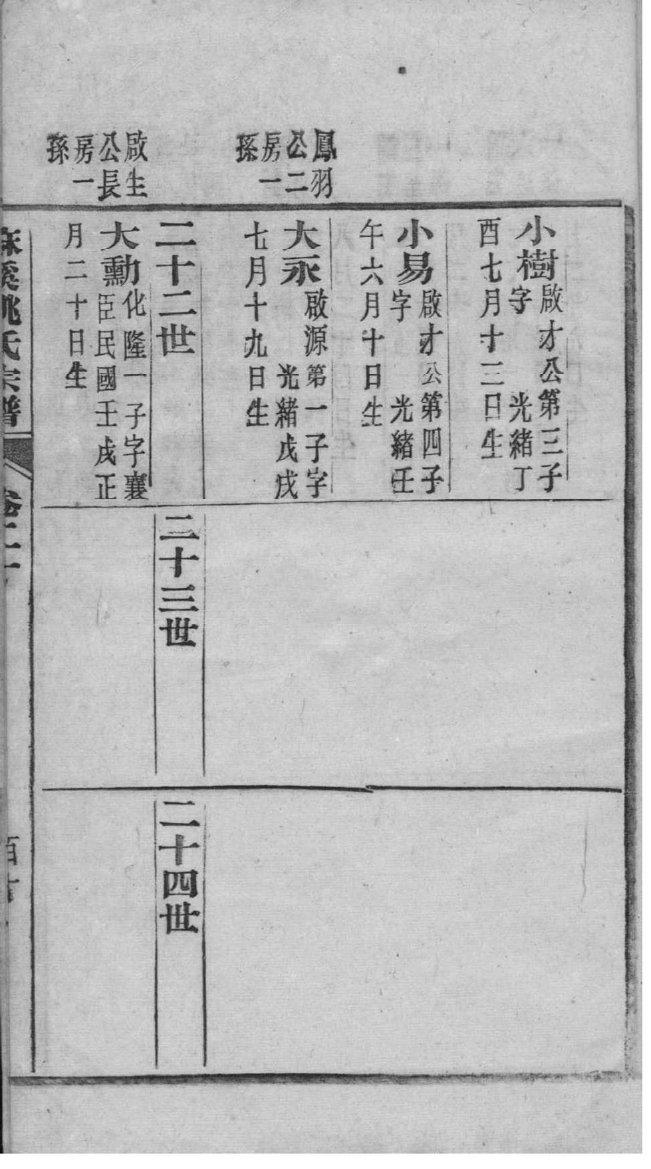 鳳羽
公二
房一
孫
啟生
公長
房一
孫
小樹啟才公第三子
字 光緒丁
酉七月十三日生
小易啟才公第四子
字 光緒壬
午六月十日生
大永啟源第一子字
光緒戊戌
七月十九日生
二十二世
大勳化隆一子字襄
臣民國壬戌正
月二十日生
二十三世
二十四世
麻溪姚氏宗譜
卷二十